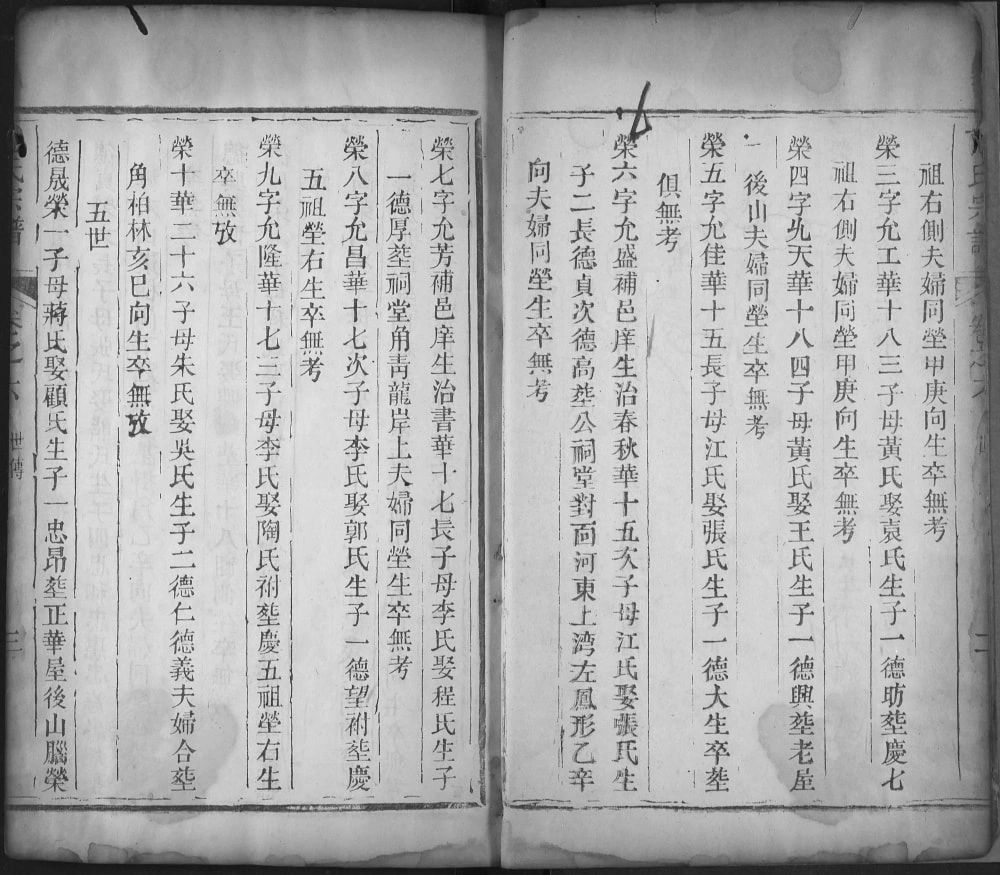 祖右側夫婦同塋甲庚向生卒無考
榮三字允工華十八三子母黃氏娶袁氏生子一德昉塟慶七
祖右側夫婦同塋甲庚向生卒無考
榮四字允天華十八四子母黃氏娶王氏生子一德興塟老屋
後山夫婦同塋生卒無考
榮五字允佳華十五長子母江氏娶張氏生子一德大生卒塟
俱無考
榮六字允盛補邑庠生治春秋華十五次子母江氏娶張氏生
子二長德貞次德高塟公祠堂對面河東上湾左鳳形乙辛
向夫婦同塋生卒無考
榮七字允芳補邑庠生治書華十七長子母李氏娶程氏生子
一德厚塟祠堂角靑龍岸上夫婦同塋生卒無考
榮八字允昌華十七次子母李氏娶郭氏生子一德望祔塟慶
五祖塋右生卒無考
榮九字允隆華十七三子母李氏娶陶氏祔塟慶五祖塋右生
卒無攷
榮十華二十六子母朱氏娶吳氏生子二德仁德義夫婦合塟
角柏林亥巳向生卒無攷
五世
德晟榮一子母蔣氏娶顧氏生子一忠昂塟正華屋後山腦榮
氏宗譜
卷之六
世傳
三